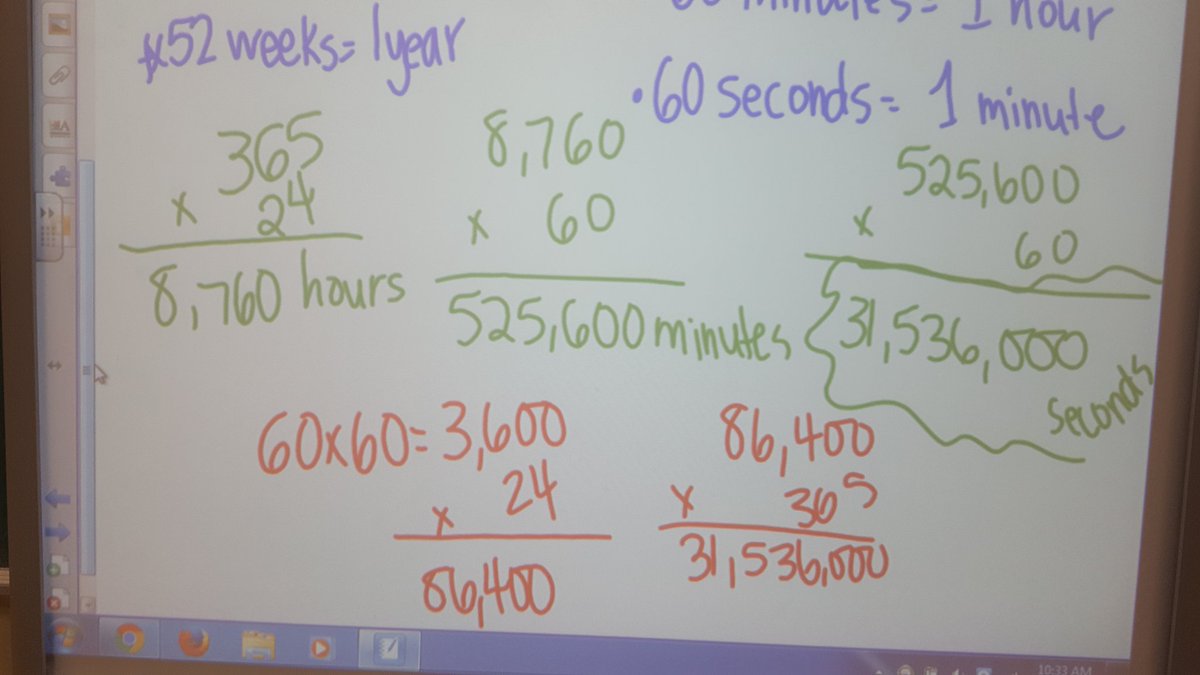 60 minutes = 1 hour
x52 weeks = 1 year
• 60 seconds = 1 minute
365
x 24
8,760 hours
8,760
x 60
525,600 minutes
525,600
x 60
31,536,000
seconds
60x60= 3,600
x 24
86,400
86,400
x 365
31,536,000
10:33 AM